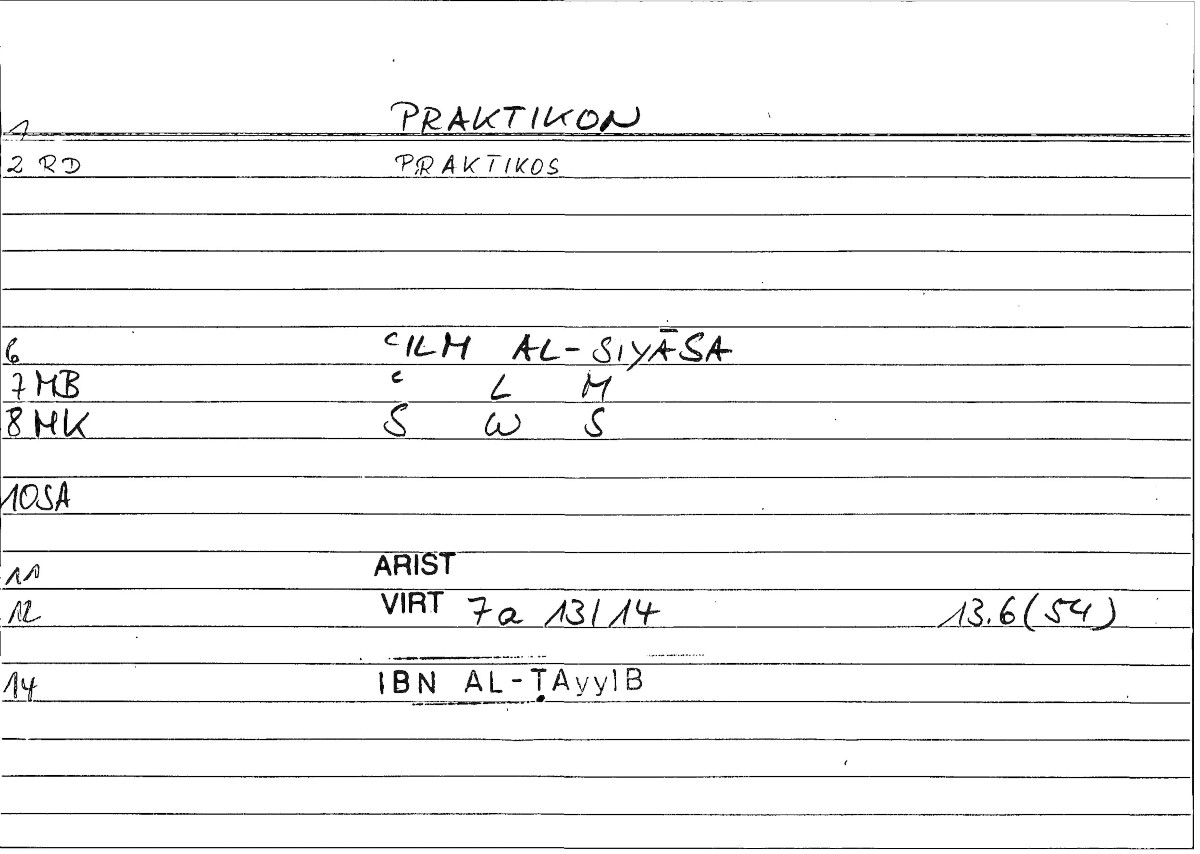 1 PRAKTIKON
2 RD PRAKTIKOS
6 ᶜILM AL-SIYĀSA
7 MB ᶜ L M
8 MK S W S
10 SA
11 ARIST
12 VIRT 7a 13/14 13.6(54)
14 IBN AL-ṬAyyIB